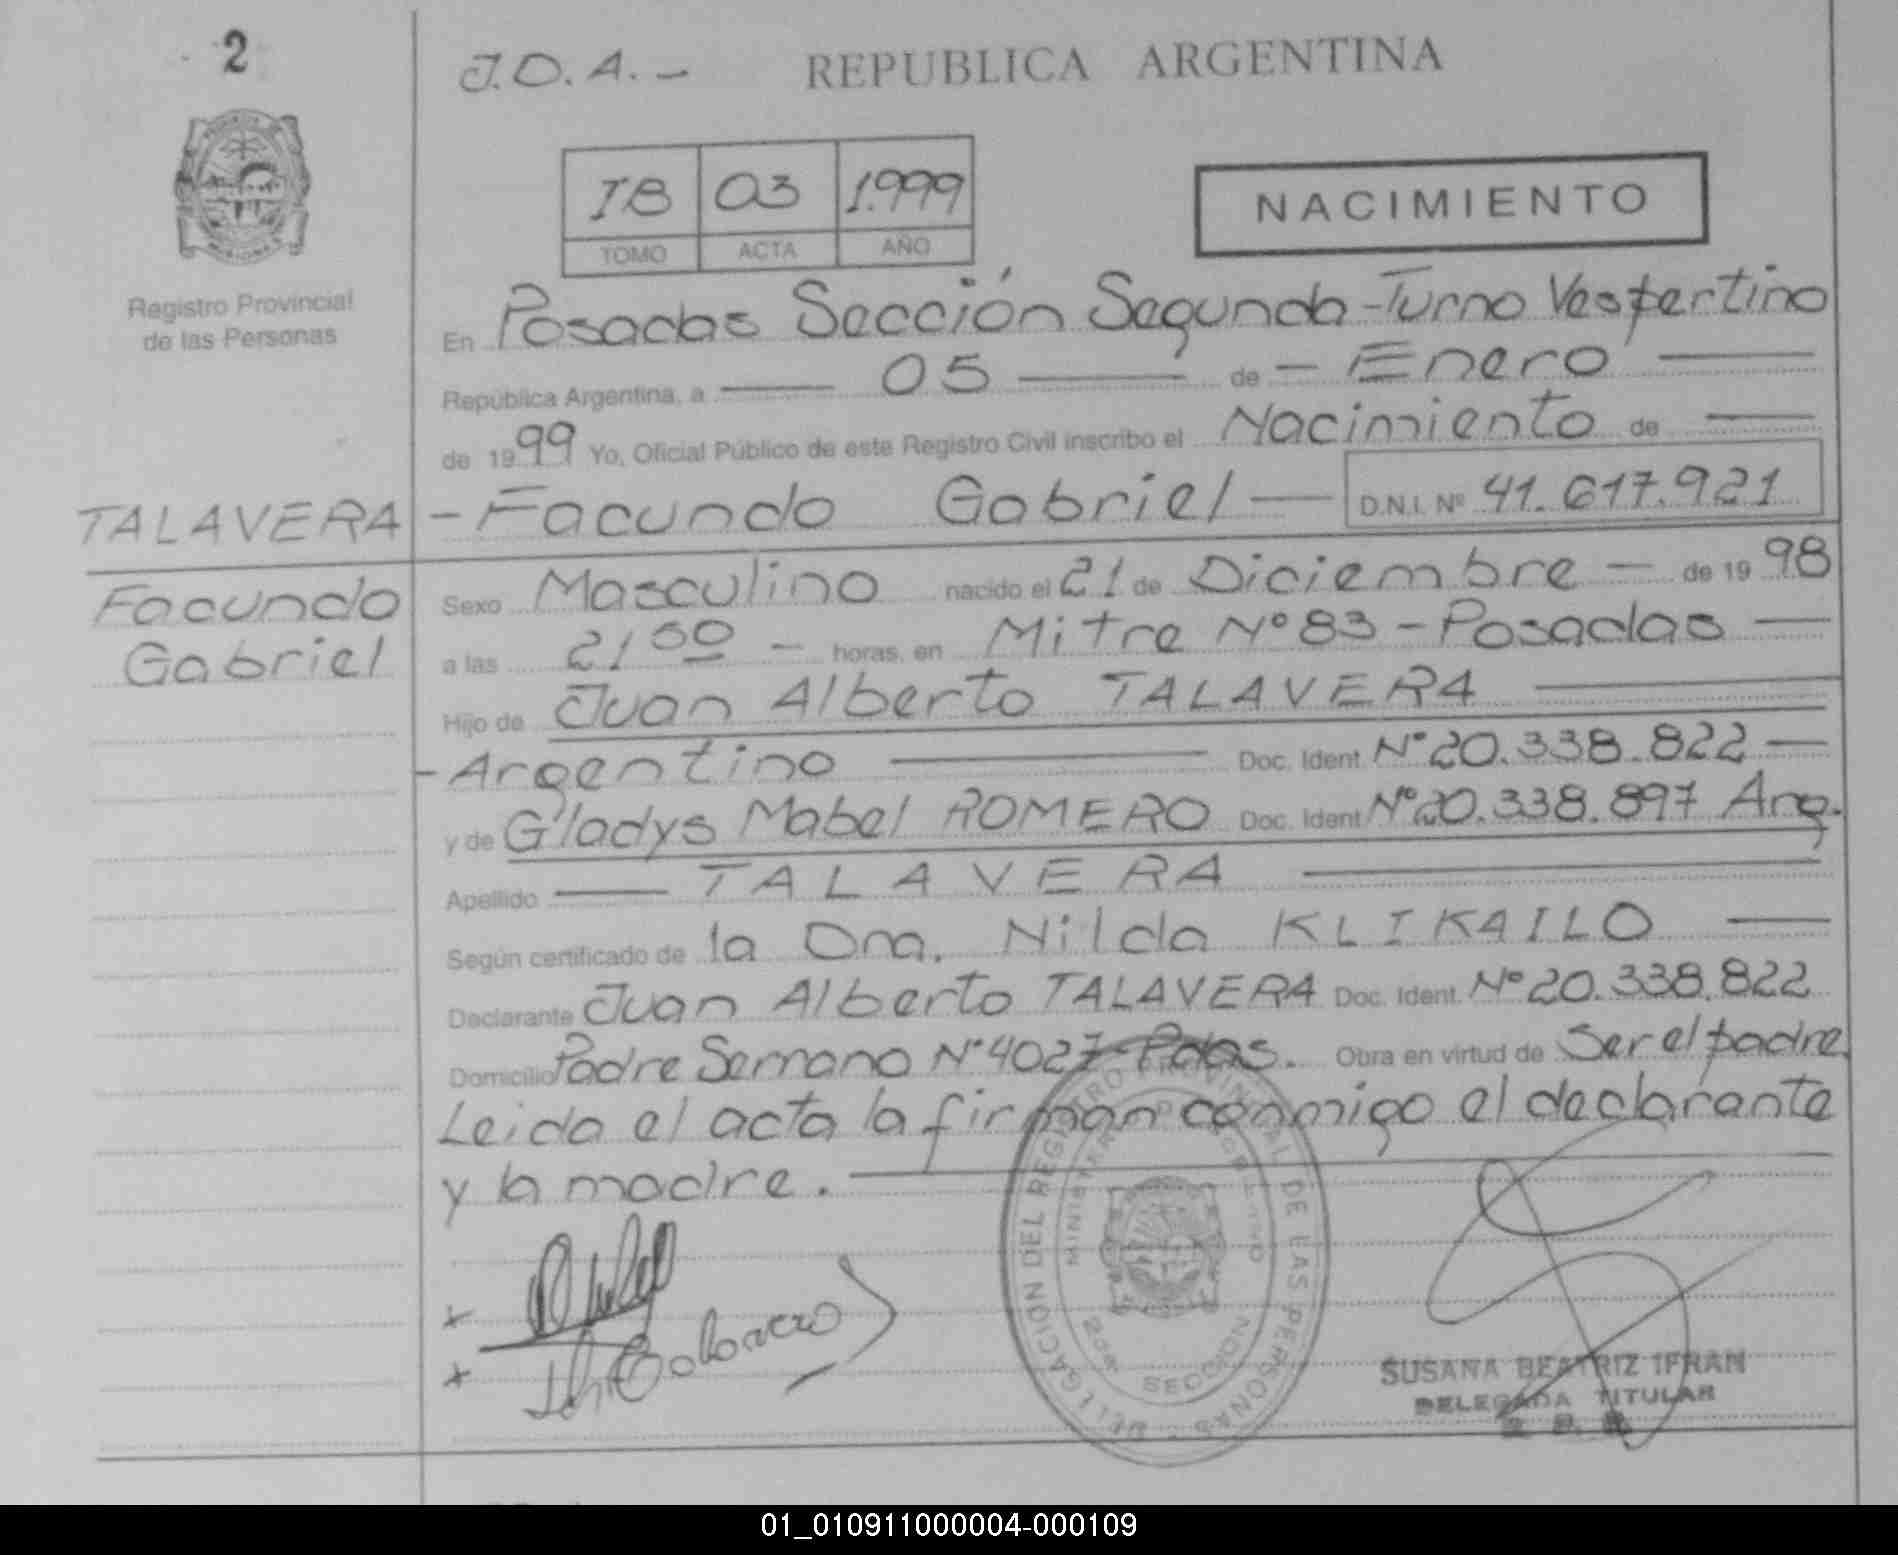 2
J.D.A.-
REPUBLICA ARGENTINA
IB 03 1.999
TOMO ACTA AÑO
NACIMIENTO
Registro Provincial
de las Personas
En Posadas Sección Segunda-Turno Vespertino
República Argentina, a 05 de - Enero
de 1999 Yo, Oficial Público de este Registro Civil inscribo el Nacimiento de
TALAVERA - Facundo Gabriel D.N.I. Nº 41.617.921
Facundo
Gabriel
Sexo Masculino nacido el 21 de Diciembre - de 1998
a las 21 00 - horas, en Mitre Nº 83 - Posadas
Hijo de Juan Alberto TALAVERA
- Argentino Doc. Ident. Nº 20.338.822
y de Gladys Mabel ROMERO Doc. Ident. Nº 20.338.897 Arg.
Apellido TALAVERA
Según certificado de la Dra. Nilda KLIKAILO
Declarante Juan Alberto TALAVERA Doc. Ident. Nº 20.338.822
Domicilio Padre Serrano Nº 4027-Pdas. Obra en virtud de Ser el padre.
Leida el acta la firman conmigo el declarante
y la madre.
DELEGACION DEL REGISTRO PROVINCIAL DE LAS PERSONAS
2da SECCION
SUSANA BEATRIZ IFRAN
DELEGADA TITULAR
01_010911000004-000109